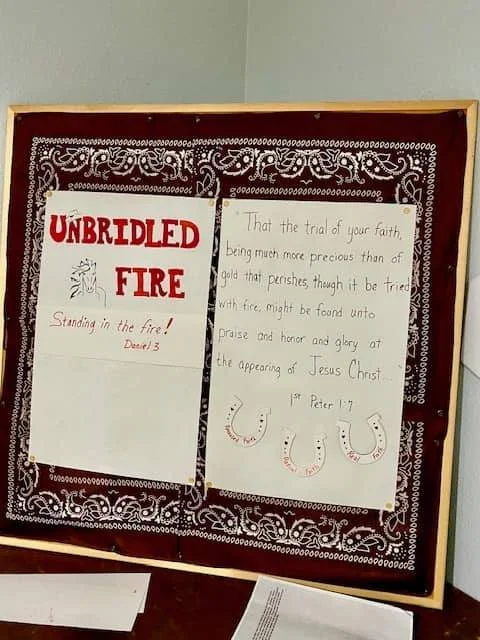 UNBRIDLED
FIRE
Standing in the fire!
Daniel 3
"That the trial of your faith,
being much more precious than of
gold that perishes, though it be tried
with fire, might be found unto
praise and honor and glory at
the appearing of Jesus Christ...
1st Peter 1:7
Faith
Faith
Real Faith